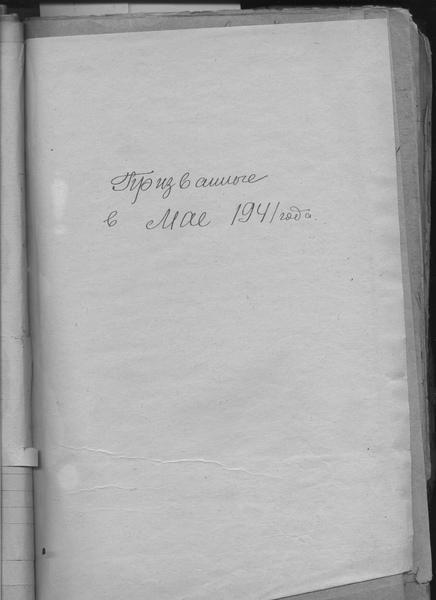 Призванные
в Мае 1941 года.